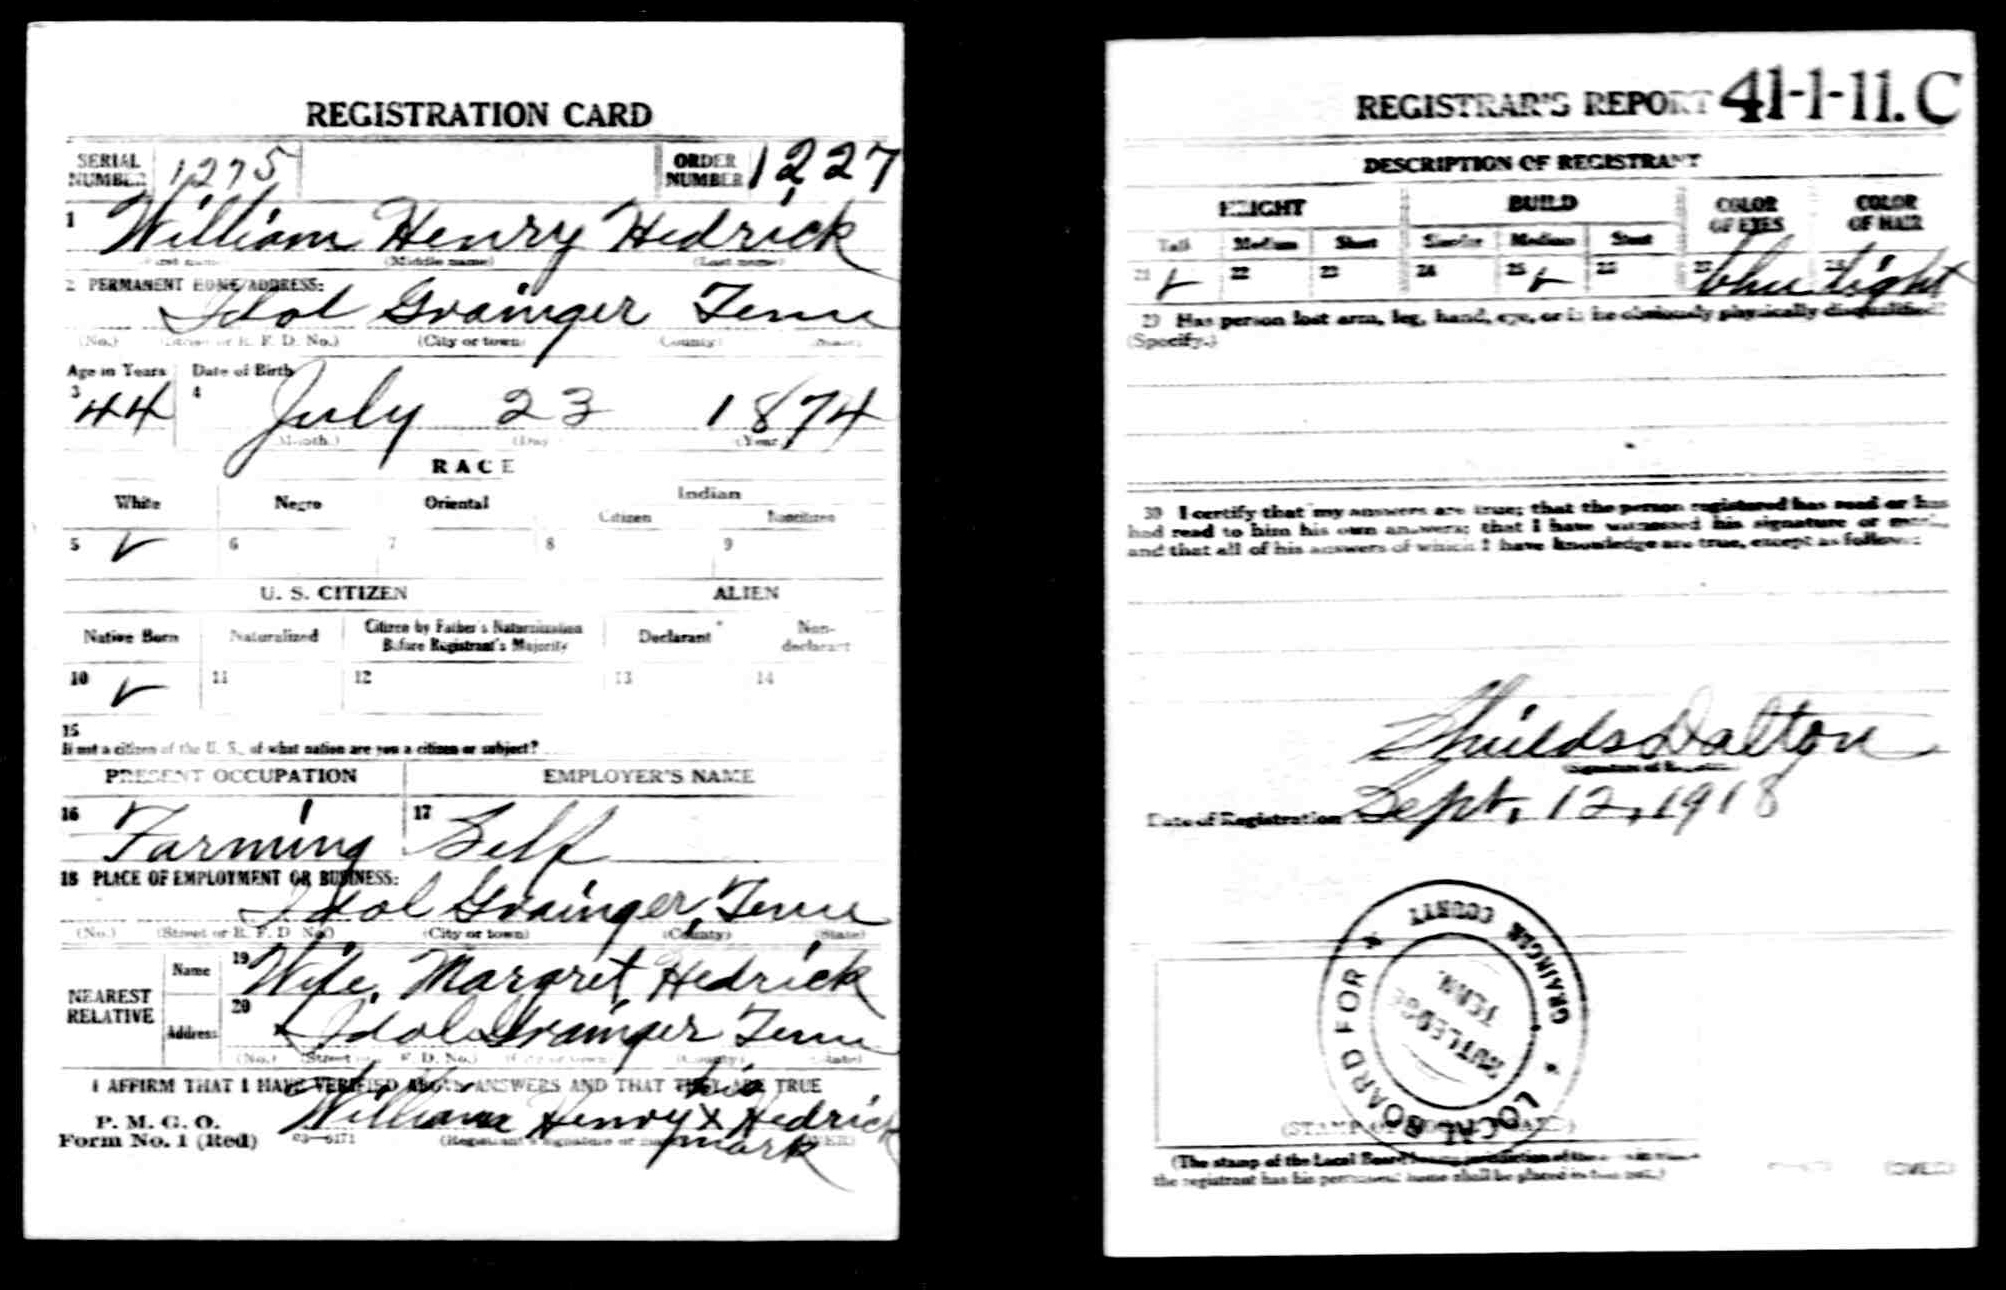 REGISTRATION CARD
SERIAL NUMBER 1275 ORDER NUMBER 1227
1 William Henry Hedrick
(First name) (Middle name) (Last name)
2 PERMANENT HOME ADDRESS:
Idol Grainger Tenn
(No.) (Street or R. F. D. No.) (City or town) (County) (State)
Age in Years Date of Birth
3 44 4 July 23 1874
(Month.) (Day) (Year)
RACE
White Negro Oriental Indian
Citizen Noncitizen
5 ✓ 6 7 8 9
U. S. CITIZEN ALIEN
Native Born Naturalized Citizen by Father's Naturalization Before Registrant's Majority Declarant Non-declarant
10 ✓ 11 12 13 14
15
If not a citizen of the U. S., of what nation are you a citizen or subject?
PRESENT OCCUPATION EMPLOYER'S NAME
16 Farming 17 Self
18 PLACE OF EMPLOYMENT OR BUSINESS:
Idol Grainger, Tenn
(No.) (Street or R. F. D. No.) (City or town) (County) (State)
NEAREST RELATIVE
Name 19 Wife, Margret Hedrick
Address 20 Idol Grainger Tenn
(No.) (Street or R. F. D. No.) (City or town) (County) (State)
I AFFIRM THAT I HAVE VERIFIED ABOVE ANSWERS AND THAT THEY ARE TRUE
his
P. M. G. O.
Form No. 1 (Red) 03—6171 William Henry X Hedrick
(Registrant's signature or mark) (OVER)
mark
REGISTRAR'S REPORT 41-1-11. C
DESCRIPTION OF REGISTRANT
HEIGHT BUILD COLOR OF EYES COLOR OF HAIR
Tall Medium Short Slender Medium Stout
21 ✓ 22 23 24 25 ✓ 26 27 28 light
29 Has person lost arm, leg, hand, eye, or is he obviously physically disqualified?
(Specify.)
30 I certify that my answers are true; that the person registered has read or has
had read to him his own answers; that I have witnessed his signature or mark,
and that all of his answers of which I have knowledge are true, except as follows:
Shields Dalton
(Signature of Registrar)
Date of Registration Sept. 12, 1918
LOCAL BOARD FOR ★ GRAINGER COUNTY ★
RUTLEDGE TENN.
(STAMP OF LOCAL BOARD)
(The stamp of the Local Board having jurisdiction of the area in which
the registrant has his permanent home shall be placed in this box.)
(OVER)